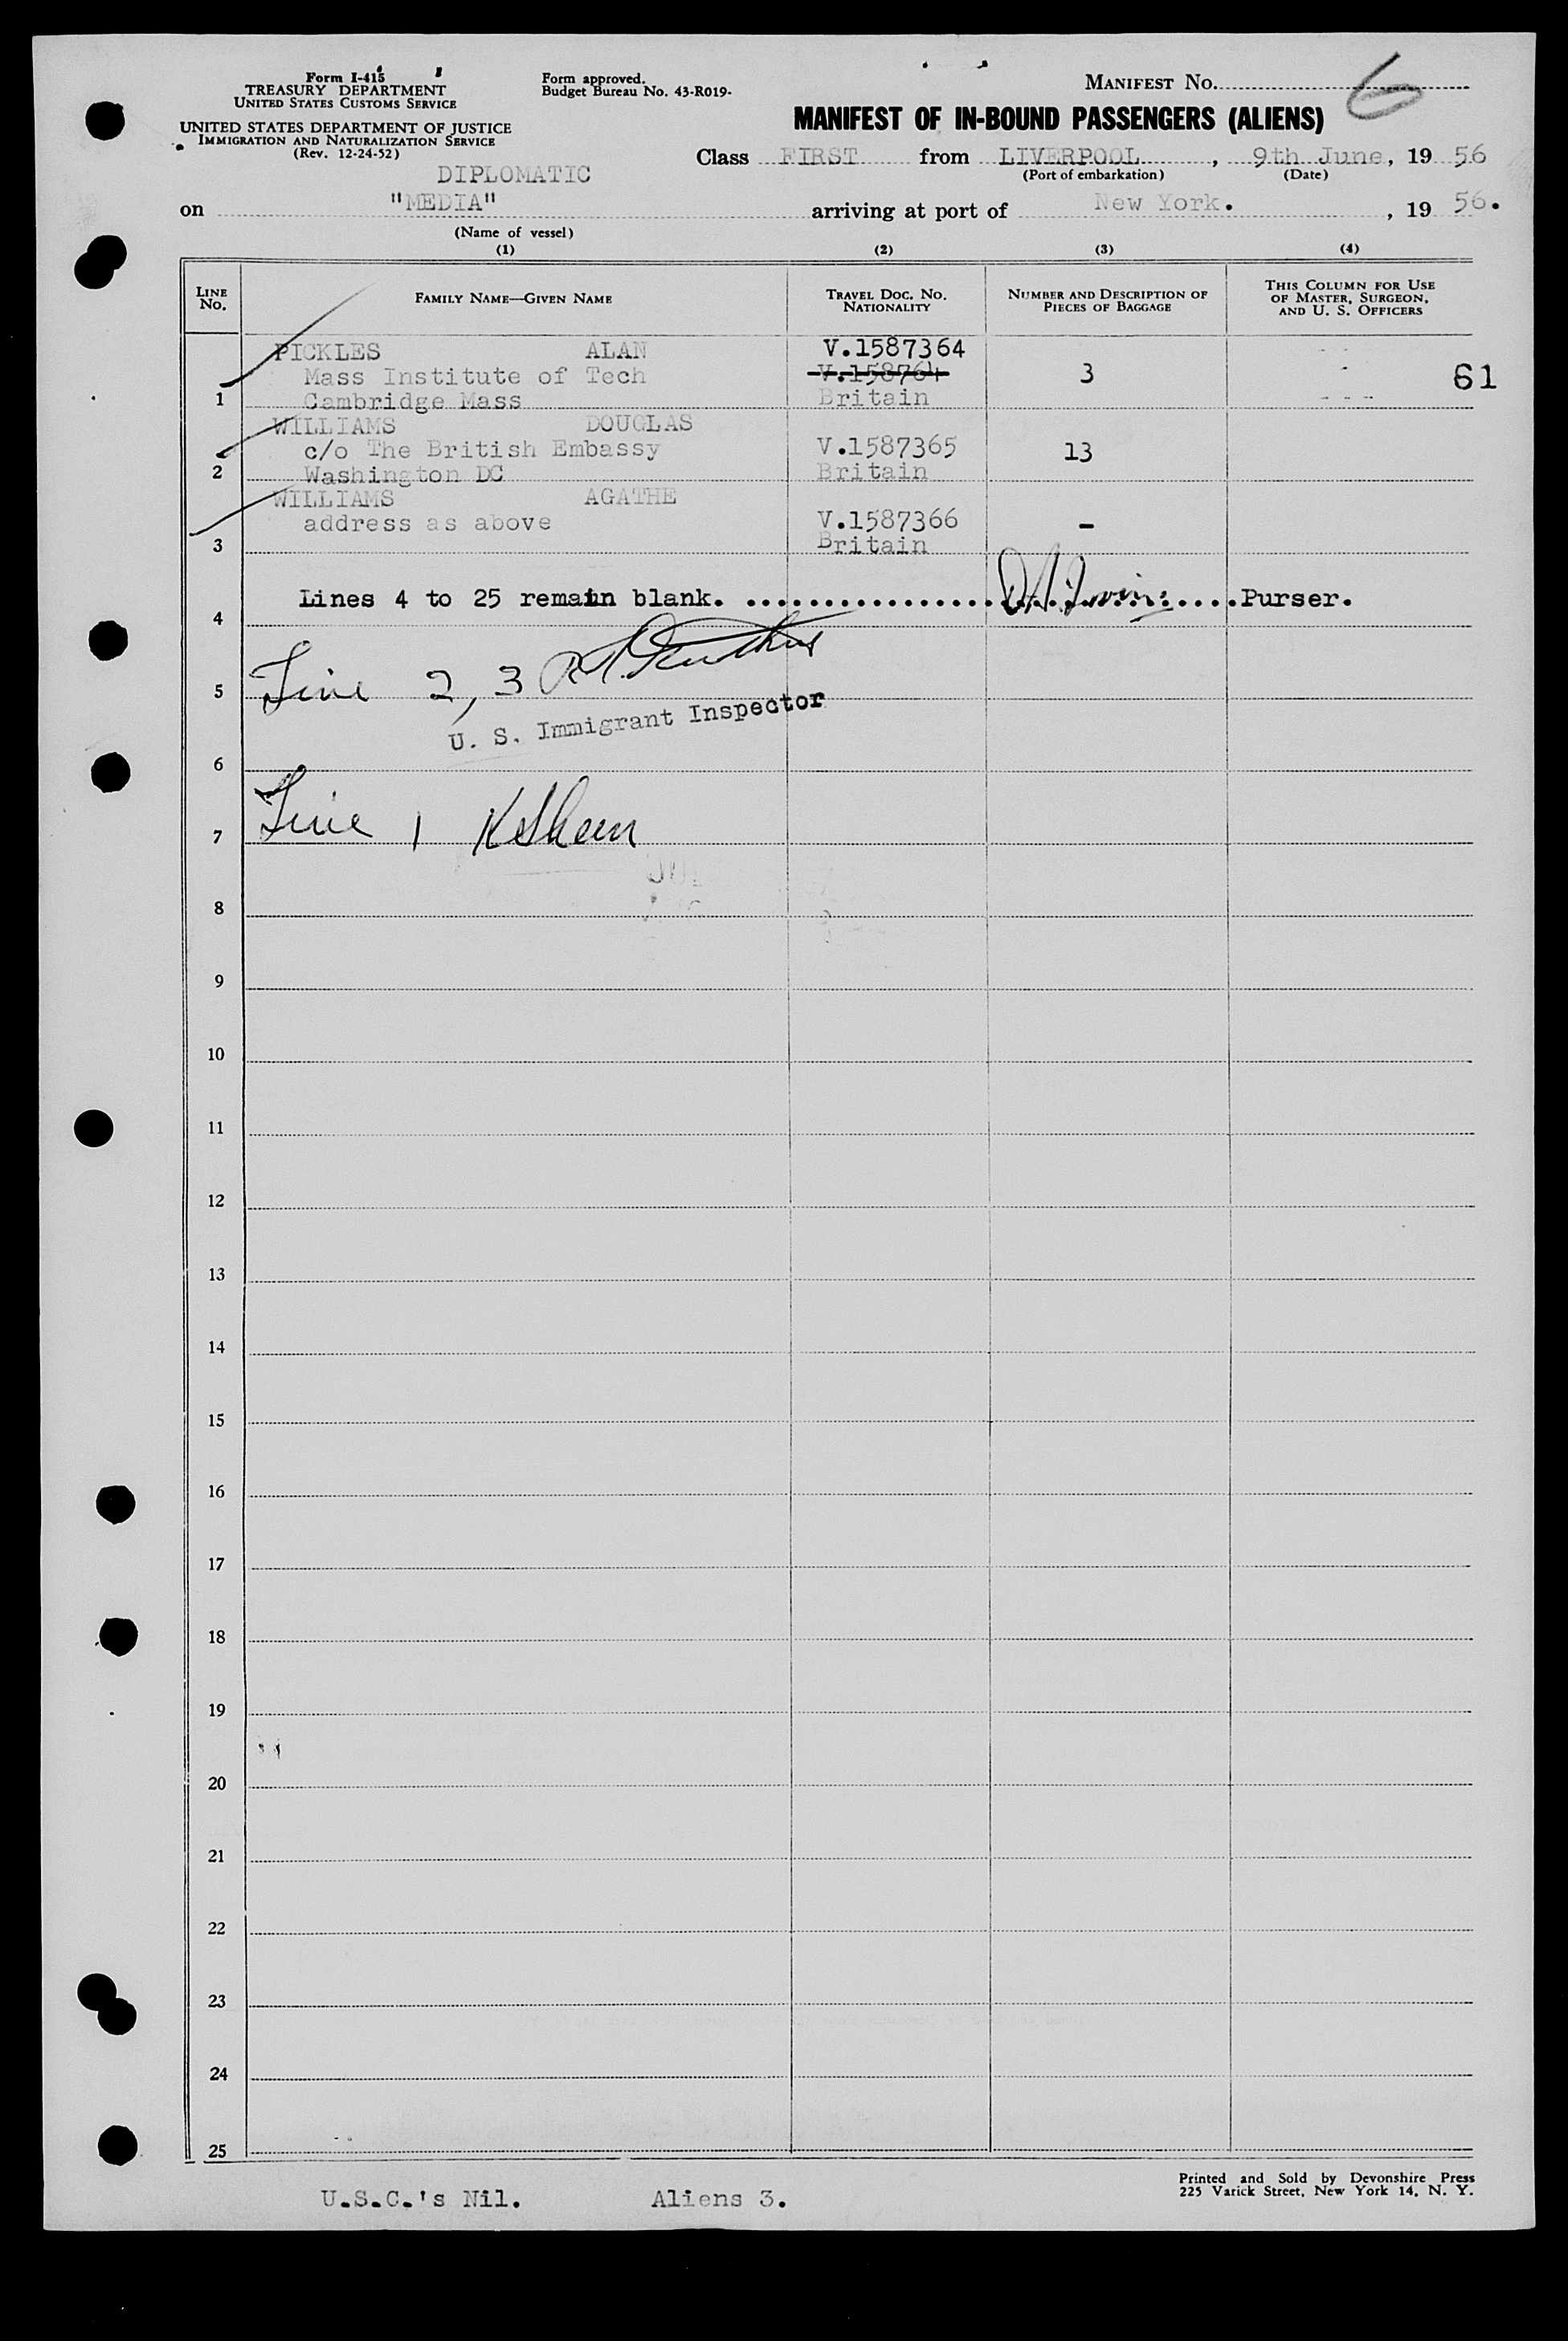 Form I-415
TREASURY DEPARTMENT
UNITED STATES CUSTOMS SERVICE
UNITED STATES DEPARTMENT OF JUSTICE
IMMIGRATION AND NATURALIZATION SERVICE
(Rev. 12-24-52)
Form approved.
Budget Bureau No. 43-R019-
MANIFEST No. 6
MANIFEST OF IN-BOUND PASSENGERS (ALIENS)
Class FIRST from LIVERPOOL, 9th June, 19 56
(Port of embarkation) (Date)
DIPLOMATIC
on "MEDIA" arriving at port of New York. , 19 56.
(Name of vessel)
(1) (2) (3) (4)
LINE No. FAMILY NAME—GIVEN NAME TRAVEL DOC. No. NATIONALITY NUMBER AND DESCRIPTION OF PIECES OF BAGGAGE THIS COLUMN FOR USE OF MASTER, SURGEON, AND U. S. OFFICERS
PICKLES ALAN V.1587364
Mass Institute of Tech V.158764 3 61
1 Cambridge Mass Britain
WILLIAMS DOUGLAS
c/o The British Embassy V.1587365 13
2 Washington DC Britain
WILLIAMS AGATHE
address as above V.1587366 -
3 Britain
Lines 4 to 25 remain blank. Purser.
4
5 Line 2, 3
U. S. Immigrant Inspector
6
7 Line 1
8
9
10
11
12
13
14
15
16
17
18
19
20
21
22
23
24
25
U.S.C.'s Nil. Aliens 3.
Printed and Sold by Devonshire Press
225 Varick Street, New York 14, N. Y.